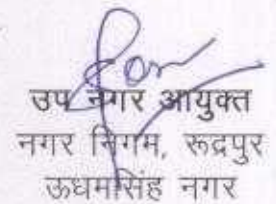 उप नगर आयुक्त
नगर निगम, रूद्रपुर
ऊधमसिंह नगर